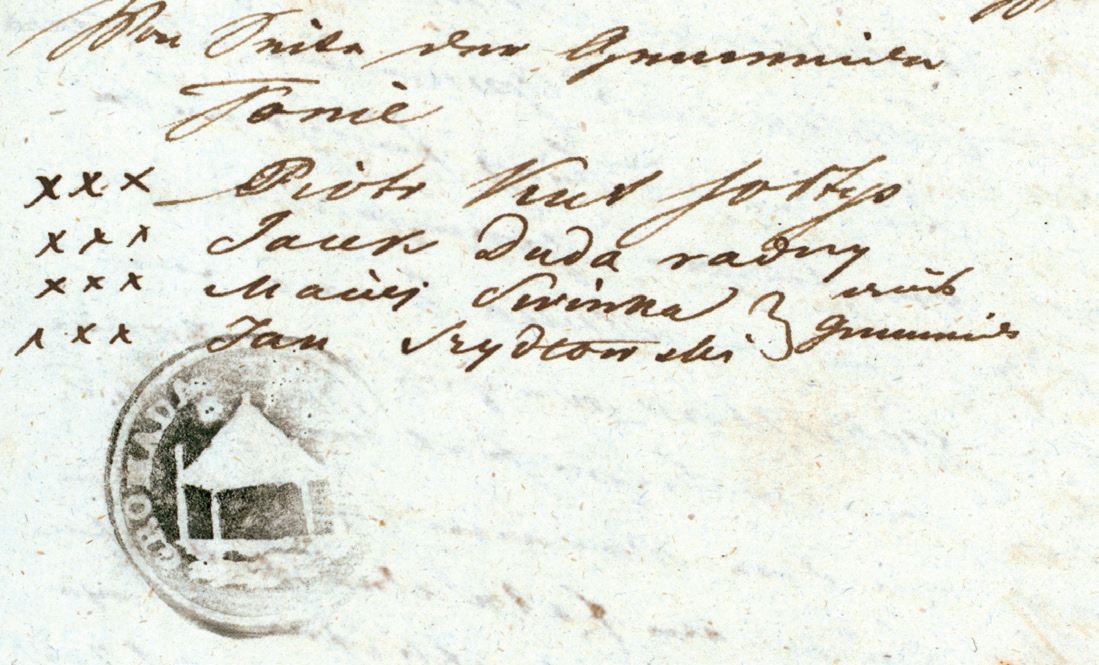 Von Seite der Gemeinden
Tonie
xxx Piotr Kurt sołtys
xxx Jacek Duda radny
xxx Maciej Swinka
xxx Jan Szydłowski
Gemeinde
GROMADA